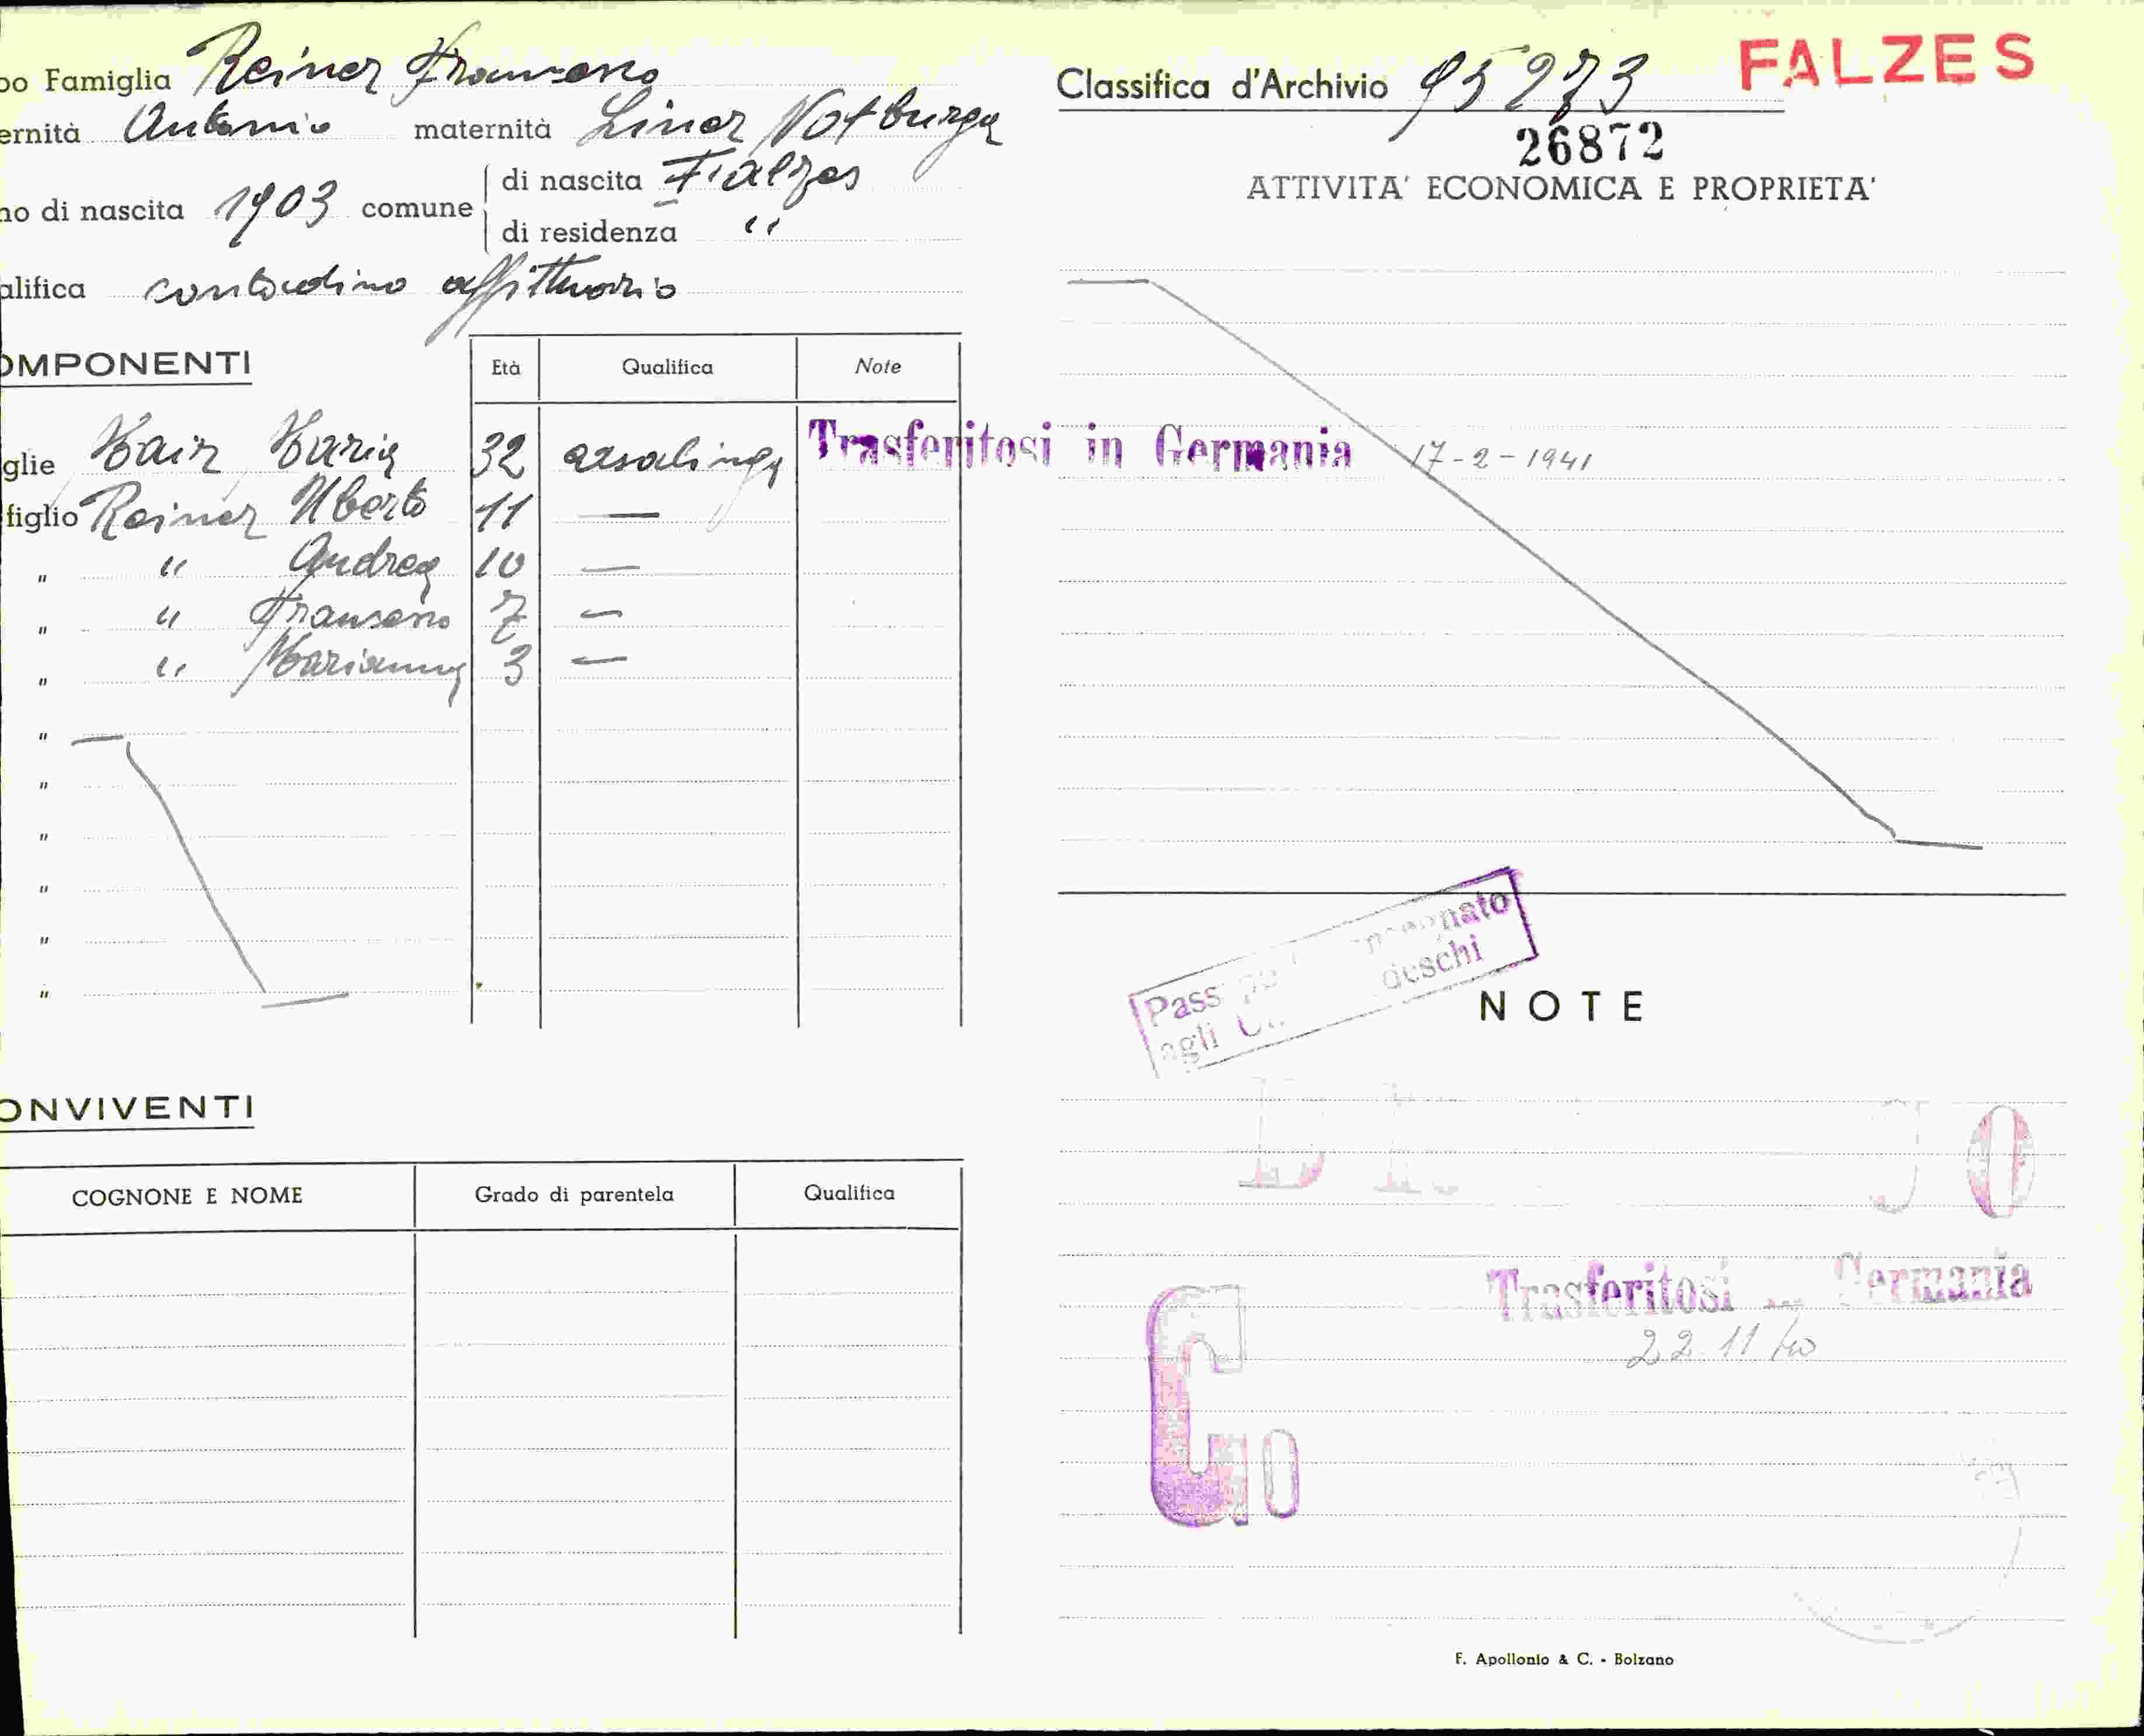 po Famiglia Reiner Francesco
ernità Antonio maternità Liner Notburga
no di nascita 1903 comune di nascita Falzes
di residenza "
alifica contadino affittuario
OMPONENTI Età Qualifica Note
glie Mair Maria 32 casalinga Trasferitosi in Germania 17-2-1941
figlio Reiner Uberto 11 —
" " Andrea 10 —
" " Francesco 7 —
" " Marianna 3 —
"
"
"
"
"
"
ONVIVENTI
COGNONE E NOME Grado di parentela Qualifica
Classifica d'Archivio 95273 FALZES
26872
ATTIVITA' ECONOMICA E PROPRIETA'
Pass
agli deschi
NOTE
Trasferitosi Germania
22 11/40
F. Apollonio & C. - Bolzano